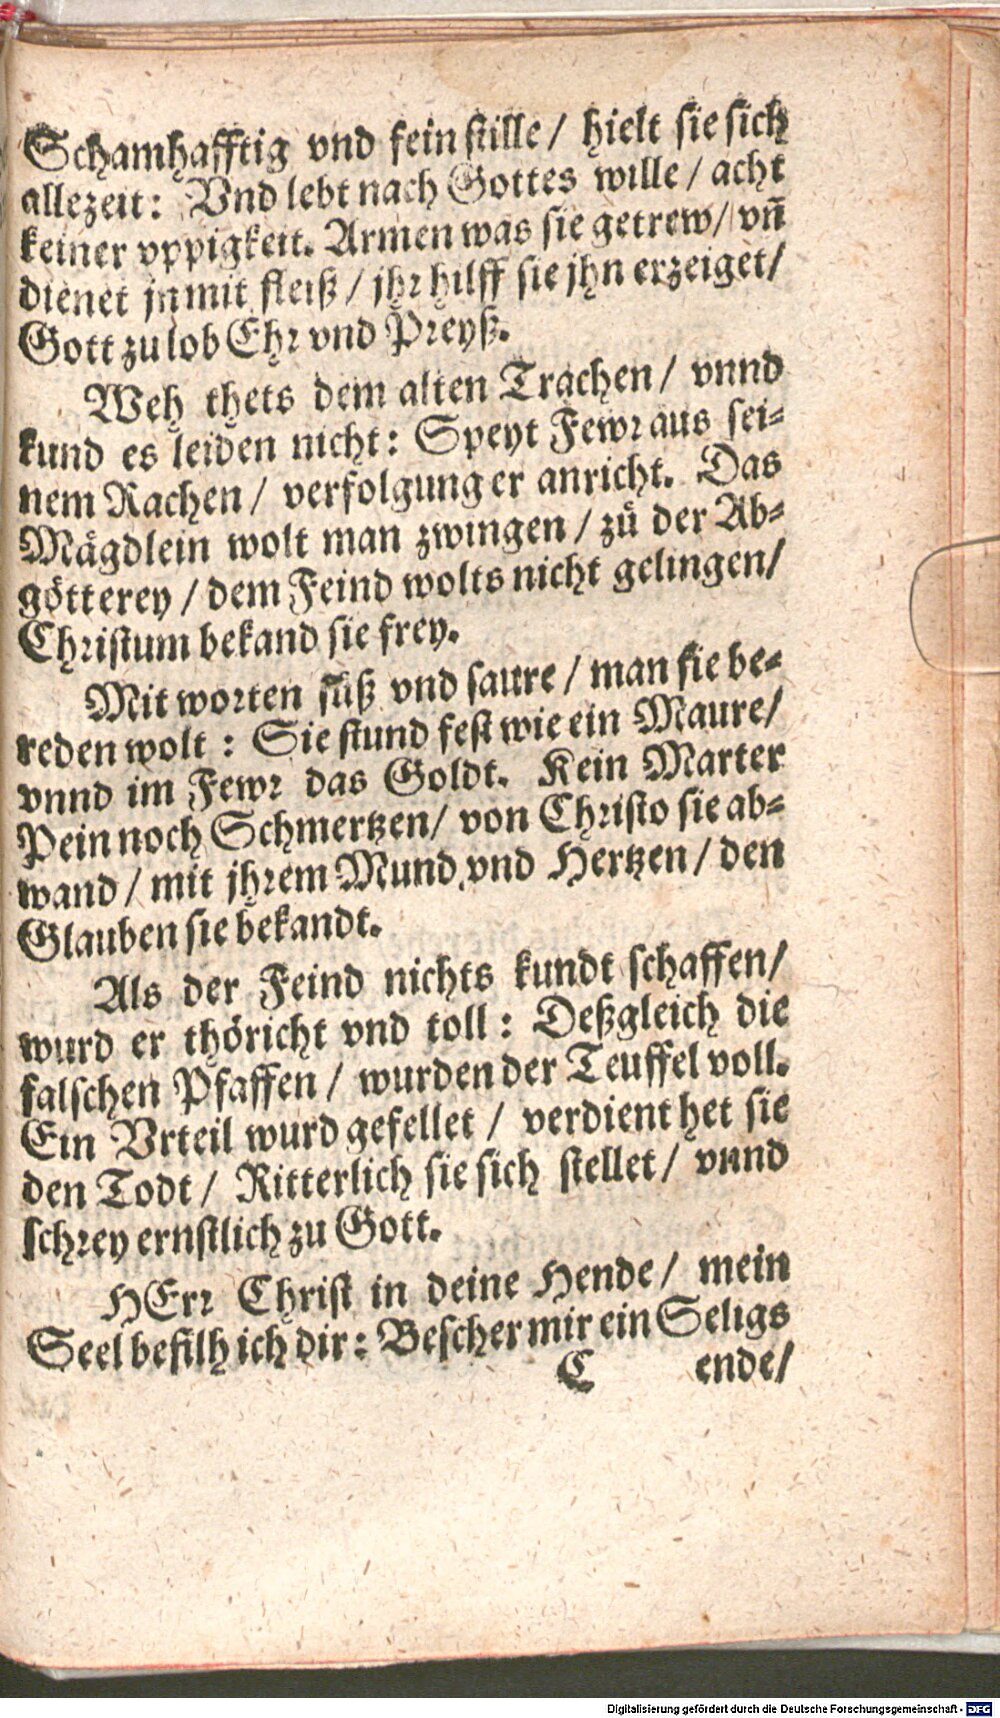 Schamhafftig vnd fein stille / hielt sie sich
allezeit: Vnd lebt nach Gottes wille / acht
keiner vppigkeit. Armen was sie getrew / vñ
dienet jn mit fleiß / jhr hilff sie jhn erzeiget /
Gott zu lob Ehr vnd Preyß.
Weh thets dem alten Trachen / vnnd
kund es leiden nicht: Speyt Fewr aus sei-
nem Rachen / verfolgung er anricht. Das
Mägdlein wolt man zwingen / zů der Ab-
götterey / dem Feind wolts nicht gelingen /
Christum bekand sie frey.
Mit worten süß vnd saure / man sie be-
reden wolt : Sie stund fest wie ein Maure /
vnnd im Fewr das Goldt. Kein Marter
Pein noch Schmertzen / von Christo sie ab-
wand / mit jhrem Mund vnd Hertzen / den
Glauben sie bekandt.
Als der Feind nichts kundt schaffen /
wurd er thöricht vnd toll : Deßgleich die
falschen Pfaffen / wurden der Teuffel voll.
Ein Vrteil wurd gefellet / verdient het sie
den Todt / Ritterlich sie sich stellet / vnnd
schrey ernstlich zu Gott.
HErr Christ in deine Hende / mein
Seel befilh ich dir : Bescher mir ein Seligs
C ende /
Digitalisierung gefördert durch die Deutsche Forschungsgemeinschaft - DFG